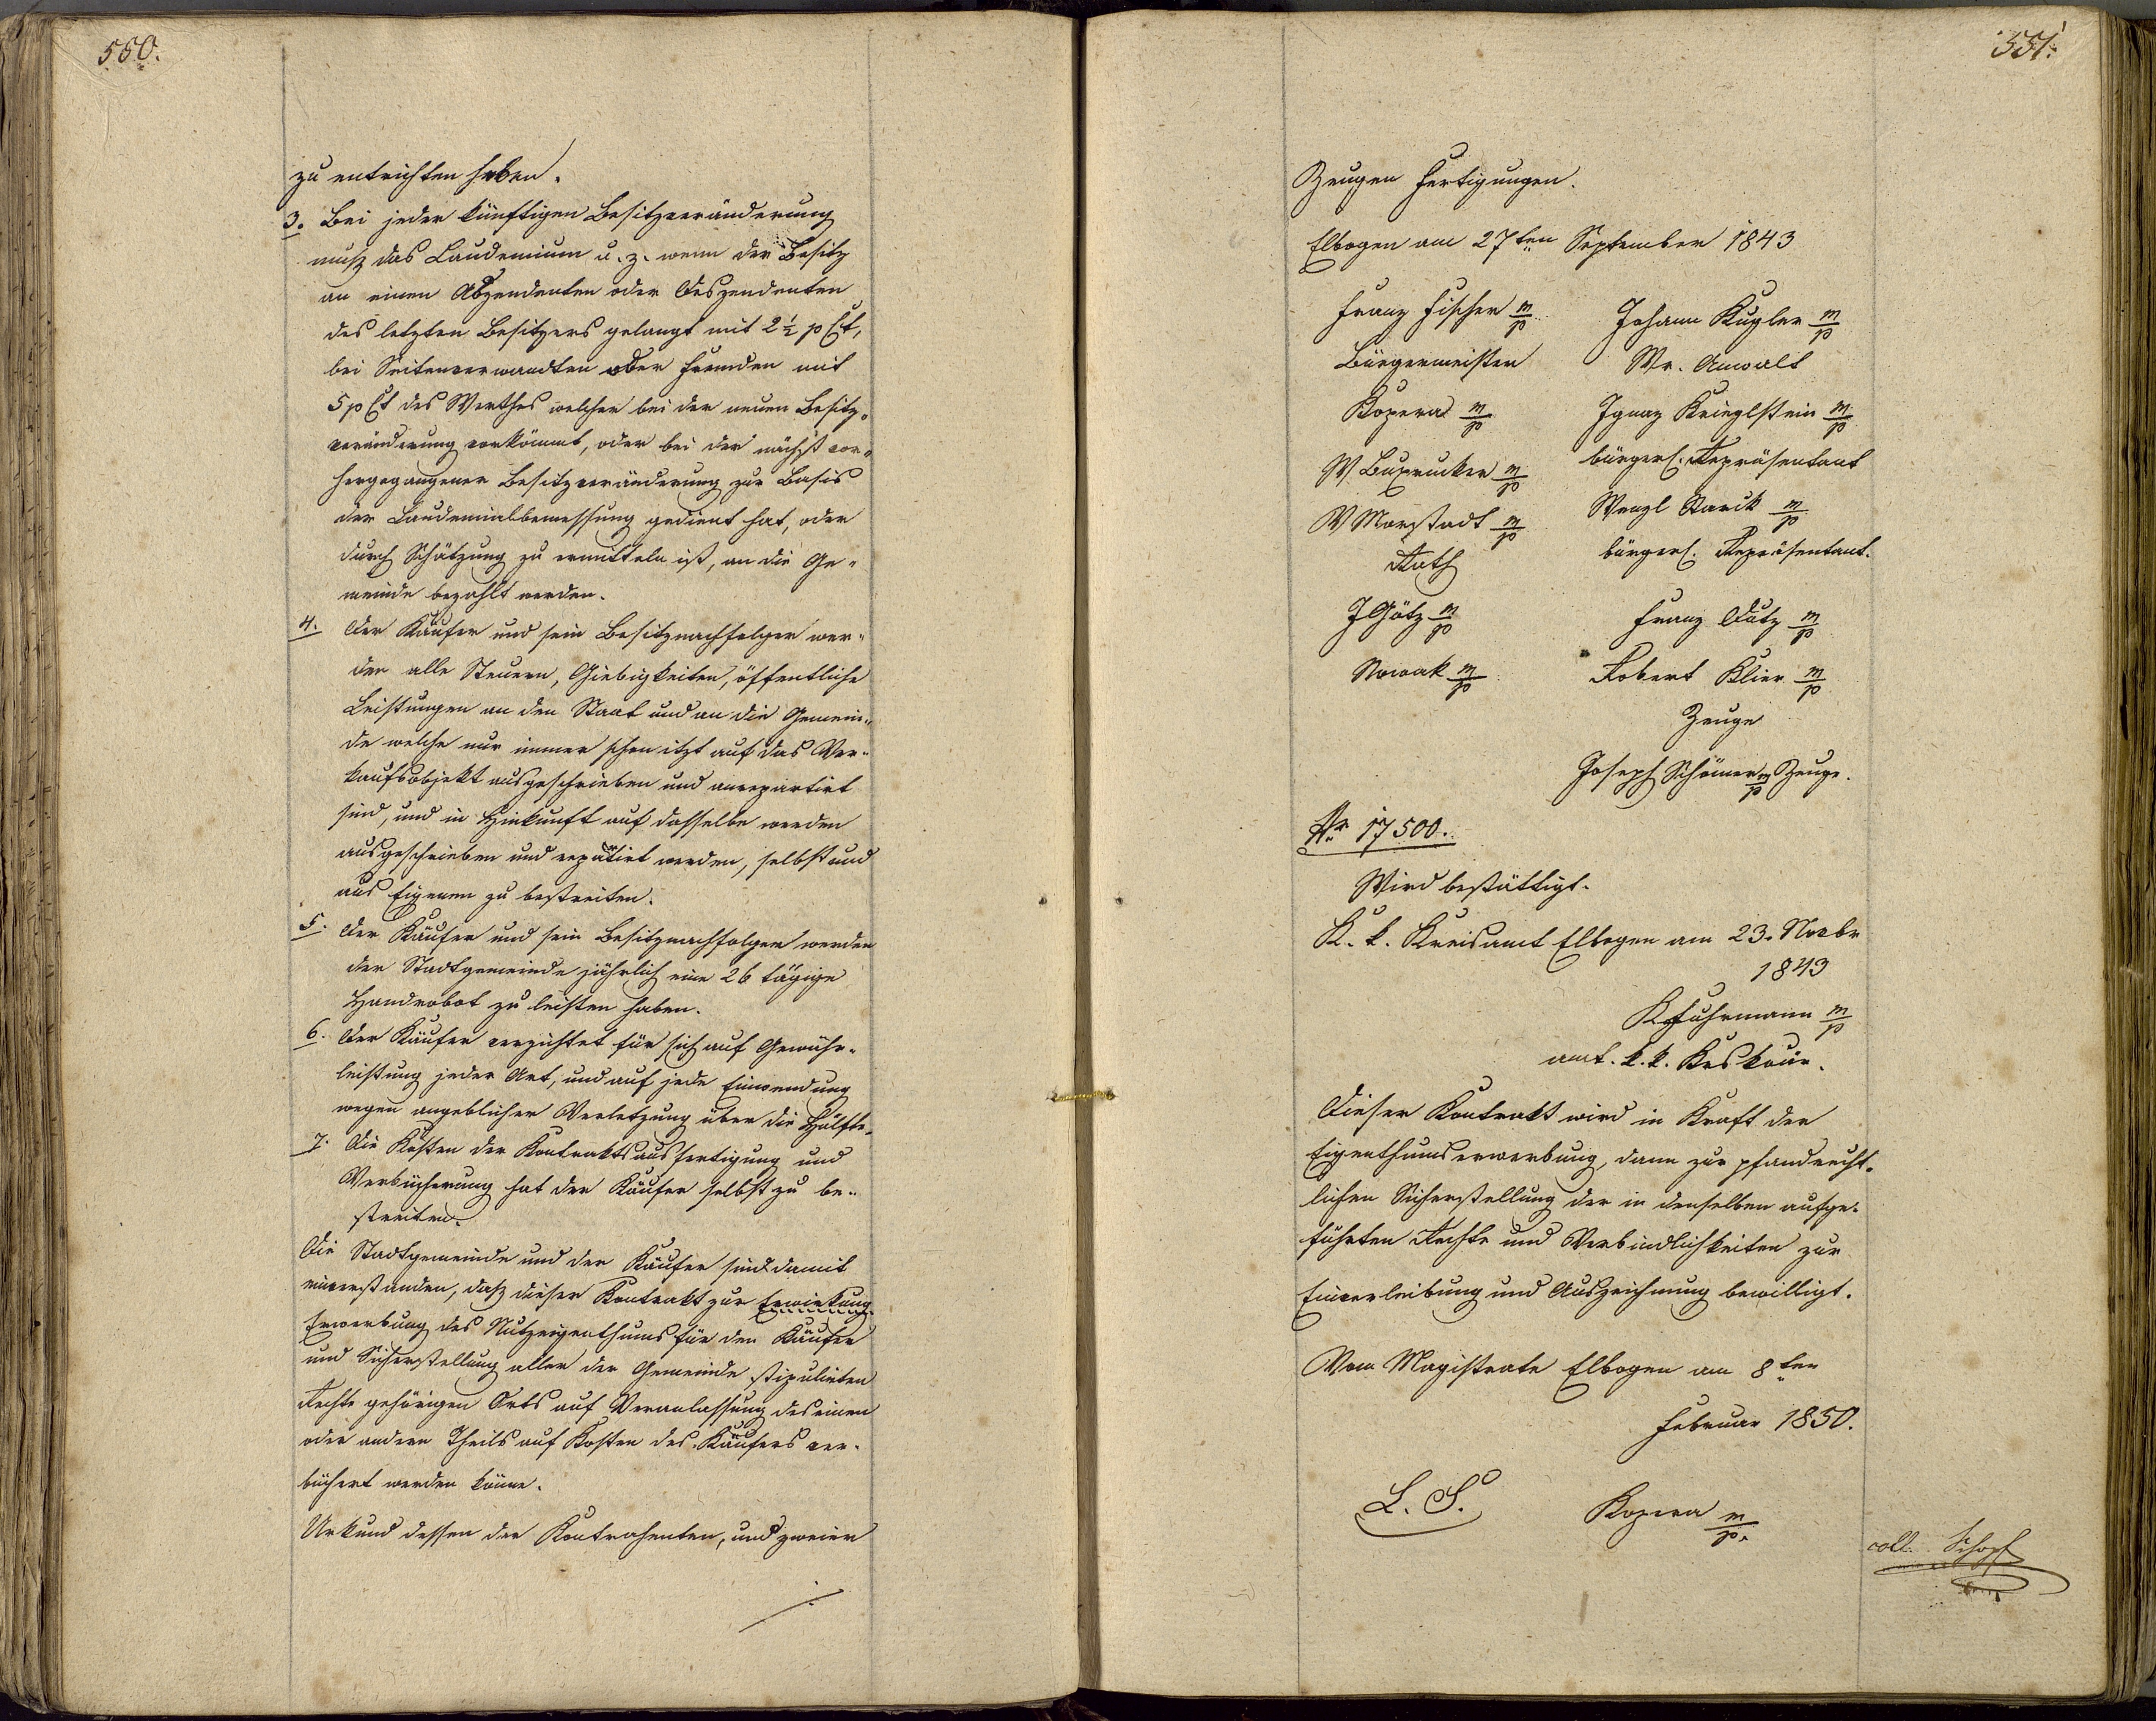 550.
zu entrichten haben.
3. Bei jeder künftigen Besitzveränderung
muß das Laudemium u. z. wenn der Besitz
an einen Aszendenten oder Deszendenten
des letzten Besitzers gelangt mit 2½ p Ct,
bei Seitenverwandten oder Fremden mit
5 p Ct des Werthes welcher bei der neuen Besitz„
veränderung vorkömmt, oder bei der nächst vor„
hergegangener Besitzveränderung zur Basis
der Laudemialbemessung gedient hat, oder
durch Schätzung zu ermitteln ist, an die Ge„
meinde bezahlt werden.
4. Der Käufer und sein Besitznachfolger wer„
den alle Steuern, Giebigkeiten, öffentliche
Leistungen an den Staat und an die Gemein„
de welche nur immer schon itzt auf das Ver„
kaufsobjekt ausgeschrieben und anrepartirt
sind, und in Hinkunft auf dasselbe werden
ausgeschrieben und repartirt werden, selbst und
aus Eigenem zu bestreiten.
5. Der Käufer und sein Besitznachfolger werden
der Stadtgemeinde jährlich eine 26 tägige
Handrobot zu leisten haben.
6. Der Käufer verzichtet für sich auf Gewähr„
leistung jeder Art, und auf jede Einwendung
wegen angeblicher Verletzung über die Hälfte.
7. Die Kosten der Kontraktsausfertigung und
Verbücherung hat der Käufer selbst zu be„
streiten.
Die Stadtgemeinde und der Käufer sind damit
einverstanden, daß dieser Kontrakt zur Erwirkung
Erwerbung des Nutzeigenthums für den Käufer
und Sicherstellung aller der Gemeinde stipulirten
Rechte gehörigen Orts auf Veranlassung des einen
oder andern Theils auf Kosten des Käufers ver„
büchert werden könne.
Urkund dessen der Kontrahenten, und zweier
551.
Zeugen Fertigungen.
Elbogen am 27ten September 1843
Franz Fischer m/p
Bürgermeister
Kopera m/p
W. Buxrucker m/p
W Marstadt m/p
Rath
J Götz m/p
Nowak m/p
Johann Kugler m/p
Wr. Anwalt
Ignaz Krieglstein m/p
bürgerl. Repräsentant
Wenzl Starck m/p
bürgerl. Repräsentant.
Franz Dutz m/p
Robert Klier m/p
Zeuge
Joseph Schöner m/p Zeuge.
Nr 17500.
Wird bestättigt.
K. k. Kreisamt Elbogen am 23. Novbr
1843
K Fuhrmann m/p
amt. k. k. Krskoär.
Dieser Kontrakt wird in Kraft der
Eigenthumserwerbung, dann zur pfandrecht„
lichen Sicherstellung der in denselben aufge„
führten Rechte und Verbindlichkeiten zur
Einverleibung und Auszeichnung bewilligt.
Vom Magistrate Elbogen am 8ten
Februar 1850.
L. S. Kopera m/p.
coll. Schopf